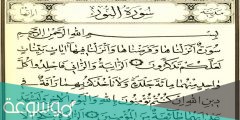 سورة النور
بسم الله الرحمن الرحيم
سورة أنزلناها وفرضناها وأنزلنا فيها آيات بينات
لعلكم تذكرون الزانية والزاني فاجلدوا كل
واحد منهما مائة جلدة ولا تأخذكم بهما رأفة في
دين الله إن كنتم تؤمنون
موسوعة